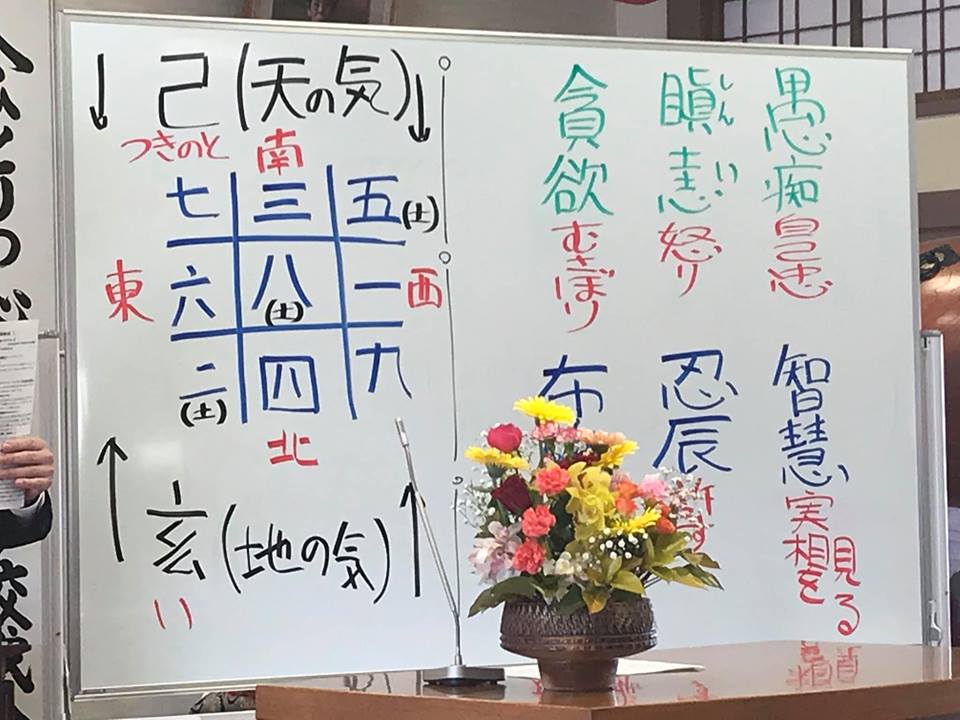 己(天の気)
つきのと
南
七 三 五(土)
東 六 八(土) 一 西
二(土) 四 九
北
亥(地の気)
い
愚痴 自己忠
智慧 実相を見る
瞋恚 しんい 怒り
忍辰
貪欲 むさぼり
布